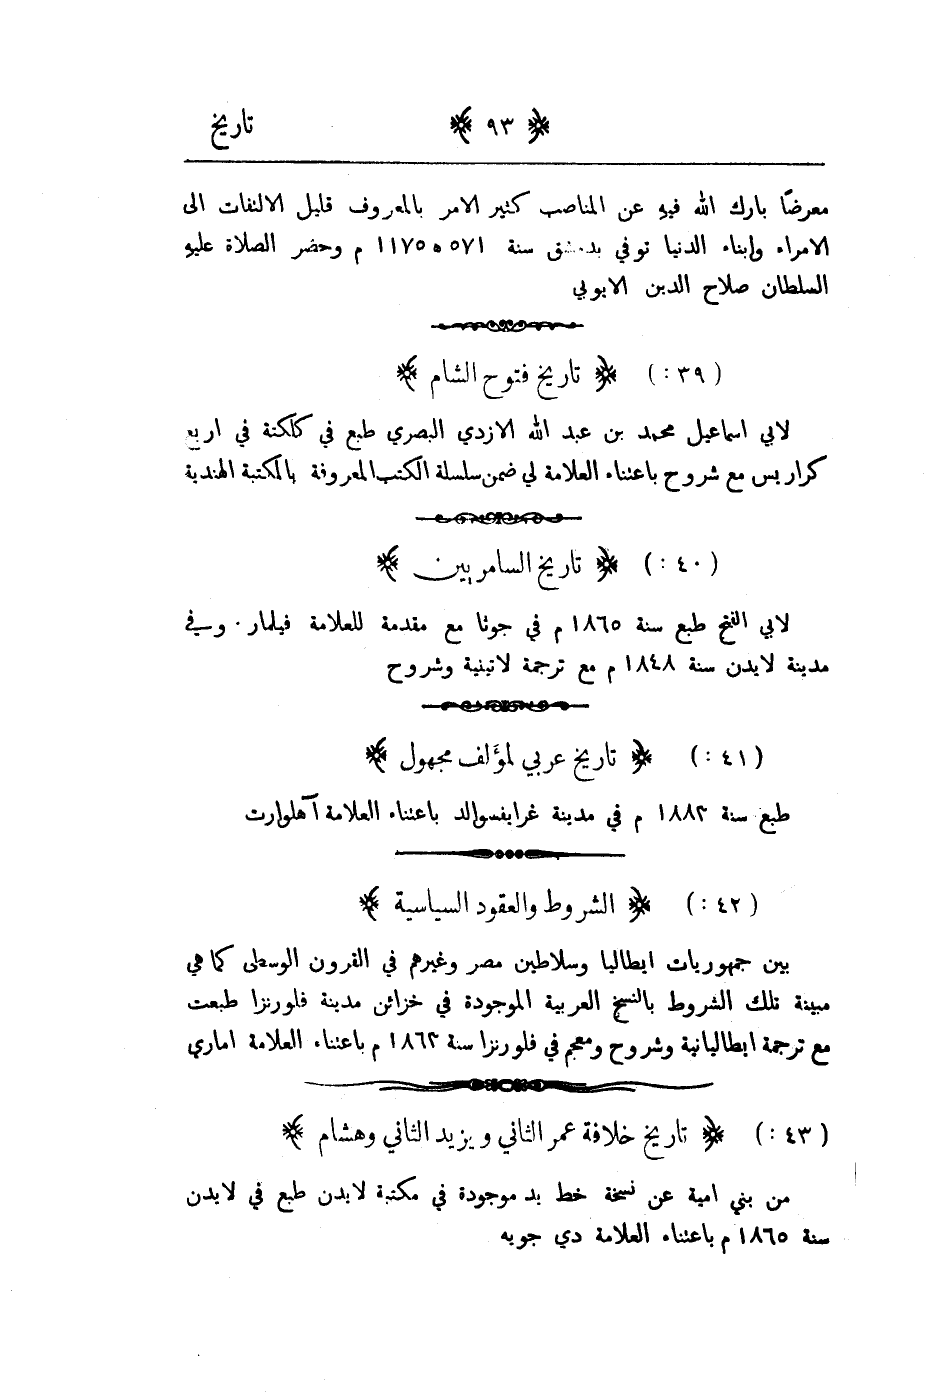 تاريخ ﴿ ٩٣ ﴾
معرضًا بارك الله فيهِ عن المناصب كثير الامر بالمعروف قليل الالتفات الى
الامراء وابناء الدنيا توفي بدمشق سنة ٥٧١ ه ١١٧٥ م وحضر الصلاة عليهِ
السلطان صلاح الدين الايوبي
( ٣٩ : ) ﴿ تاريخ فتوح الشام ﴾
لابي اسماعيل محمد بن عبد الله الازدي البصري طبع في كلكتة في اربع
كراريس مع شروح باعتناء العلامة لي ضمن سلسلة الكتب المعروفة بالمكتبة الهندية
( ٤٠ : ) ﴿ تاريخ السامريين ﴾
لابي الفتح طبع سنة ١٨٦٥ م في جوتا مع مقدمة للعلامة فيلمار . وفي
مدينة لايدن سنة ١٨٤٨ م مع ترجمة لاتينية وشروح
( ٤١ : ) ﴿ تاريخ عربي لمؤَلف مجهول ﴾
طبع سنة ١٨٨٣ م في مدينة غرايفسوالد باعتناء العلامة آهلوارت
( ٤٢ : ) ﴿ الشروط والعقود السياسية ﴾
بين جمهوريات ايطاليا وسلاطين مصر وغيرهم في القرون الوسطى كما هي
مبينة تلك الشروط بالنسخ العربية الموجودة في خزائن مدينة فلورنزا طبعت
مع ترجمة ايطاليانية وشروح ومعجم في فلورنزا سنة ١٨٦٣ م باعتناء العلامة اماري
( ٤٣ : ) ﴿ تاريخ خلافة عمر الثاني ويزيد الثاني وهشام ﴾
من بني امية عن نسخة خط يد موجودة في مكتبة لايدن طبع في لايدن
سنة ١٨٦٥ م باعتناء العلامة دي جويه